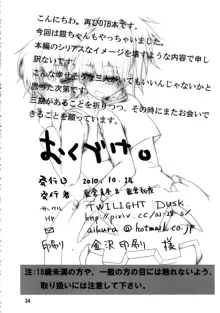 こんにちわ。再びDTB本です。
今回は銀ちゃんもやっちゃいました。
本編のシリアスなイメージを壊すような内容で申し
訳ないです。
こんな幸せそうな三人がいてもいいんじゃないかと
思った次第です。
三期があることを祈りつつ、その時にまたお会いで
きることを願っています。
おくづけ。
発行日 2010.10.24
発行者
サークル TWILIGHT DUSK.
HP
aikura@hotmail.co.jp
印刷 金沢印刷 様
注:18歳未満の方や、一般の方の目には触れないよう、
取り扱いには注意して下さい。
24